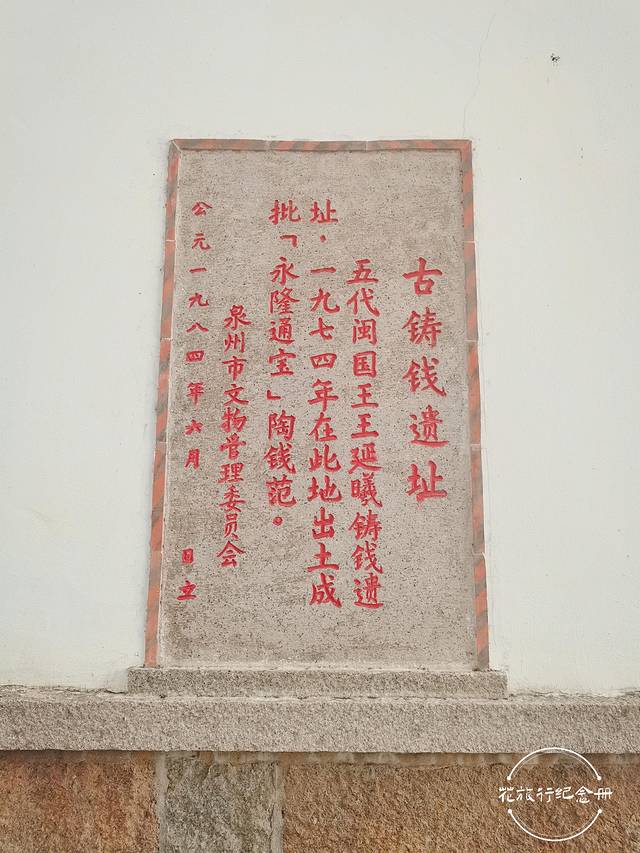 古铸钱遗址
五代闽国王王延曦铸钱遗
址，一九七四年在此地出土成
批「永隆通宝」陶钱范。
泉州市文物管理委员会
公元一九八四年六月 日立
花旅行纪念册